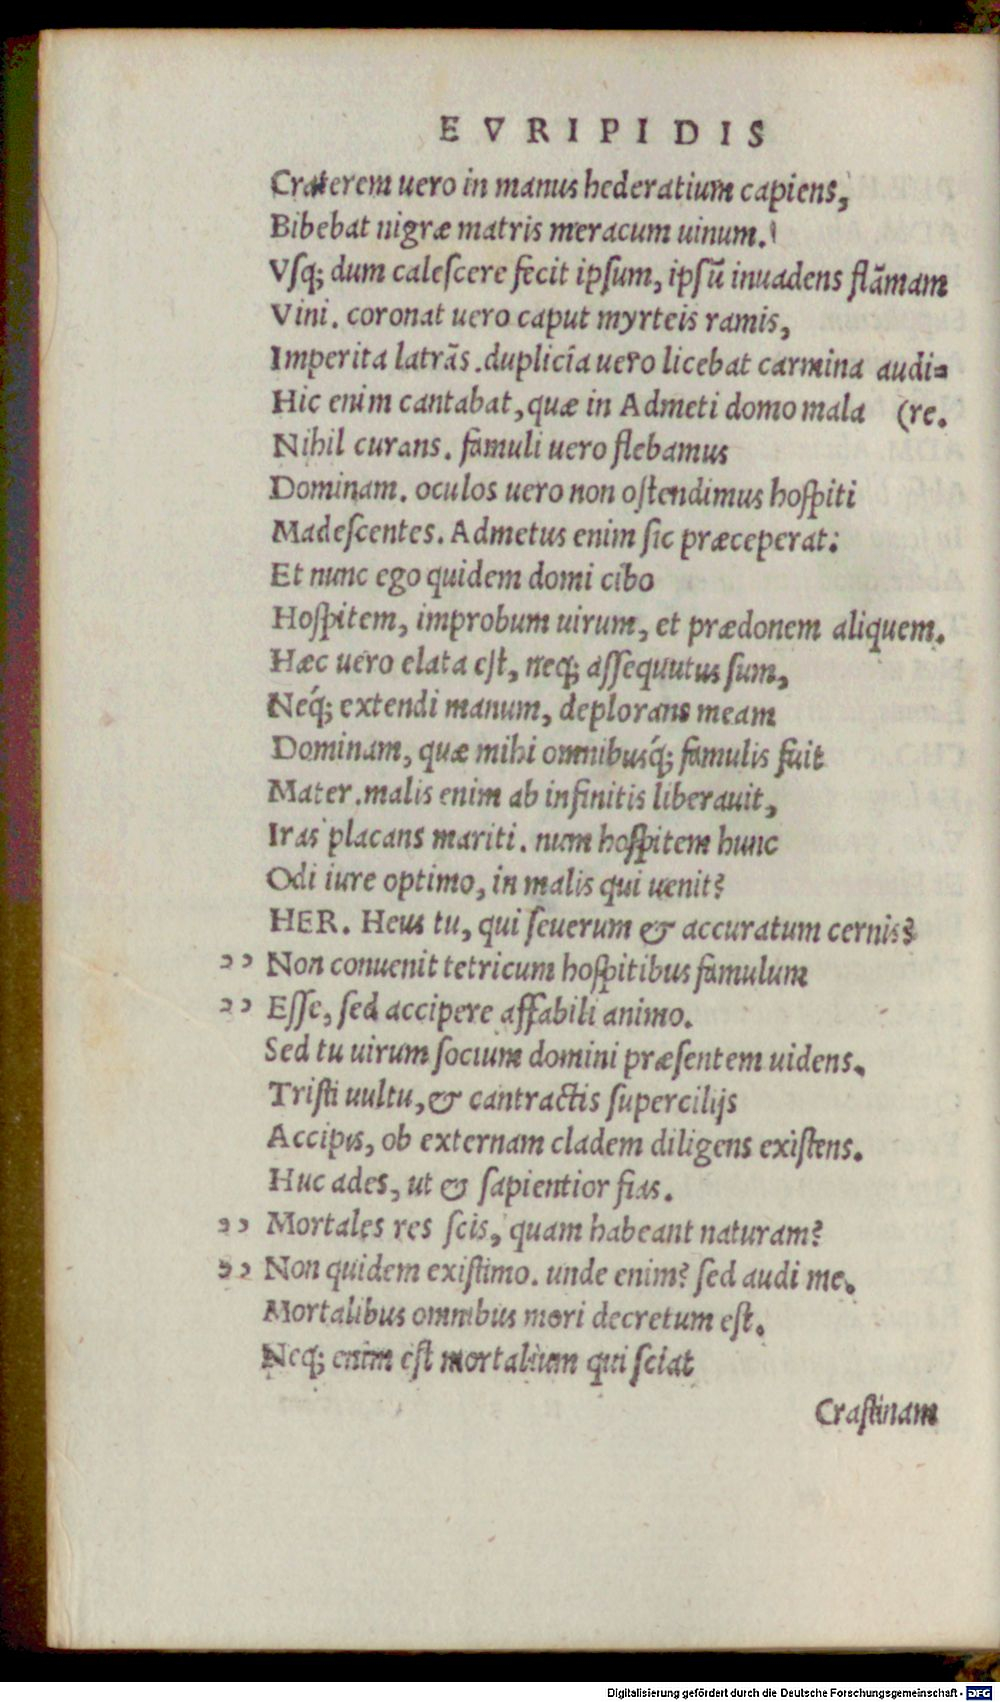 EVRIPIDIS
Craterem uero in manus hederatium capiens,
Bibebat nigræ matris meracum uinum.
Vſq; dum caleſcere fecit ipſum, ipſū inuadens flāmam
Vini. coronat uero caput myrteis ramis,
Imperita latrās. duplicia uero licebat carmina audi=
Hic enim cantabat, quæ in Admeti domo mala (re.
Nihil curans. famuli uero flebamus
Dominam. oculos uero non oſtendimus hoſpiti
Madeſcentes. Admetus enim ſic præceperat:
Et nunc ego quidem domi cibo
Hoſpitem, improbum uirum, et prædonem aliquem.
Hæc uero elata eſt, neq; aſſequutus ſum,
Neq́; extendi manum, deplorans meam
Dominam, quæ mihi omnibusq́; famulis fuit
Mater. malis enim ab infinitis liberauit,
Iras placans mariti. num hoſpitem hunc
Odi iure optimo, in malis qui uenit?
HER. Heus tu, qui ſeuerum & accuratum cernis?
,, Non conuenit tetricum hoſpitibus famulum
,, Eſſe, ſed accipere affabili animo.
Sed tu uirum ſocium domini præſentem uidens.
Triſti uultu, & cantractis ſupercilijs
Accipis, ob externam cladem diligens exiſtens.
Huc ades, ut & ſapientior fias.
,, Mortales res ſcis, quam habeant naturam?
,, Non quidem exiſtimo. unde enim? ſed audi me.
Mortalibus omnibus mori decretum eſt.
Neq; enim eſt mortalium qui ſciat
Craſtinam
Digitalisierung gefördert durch die Deutsche Forschungsgemeinschaft - DFG